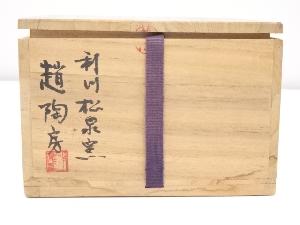 利川 松泉窯
趙陶房